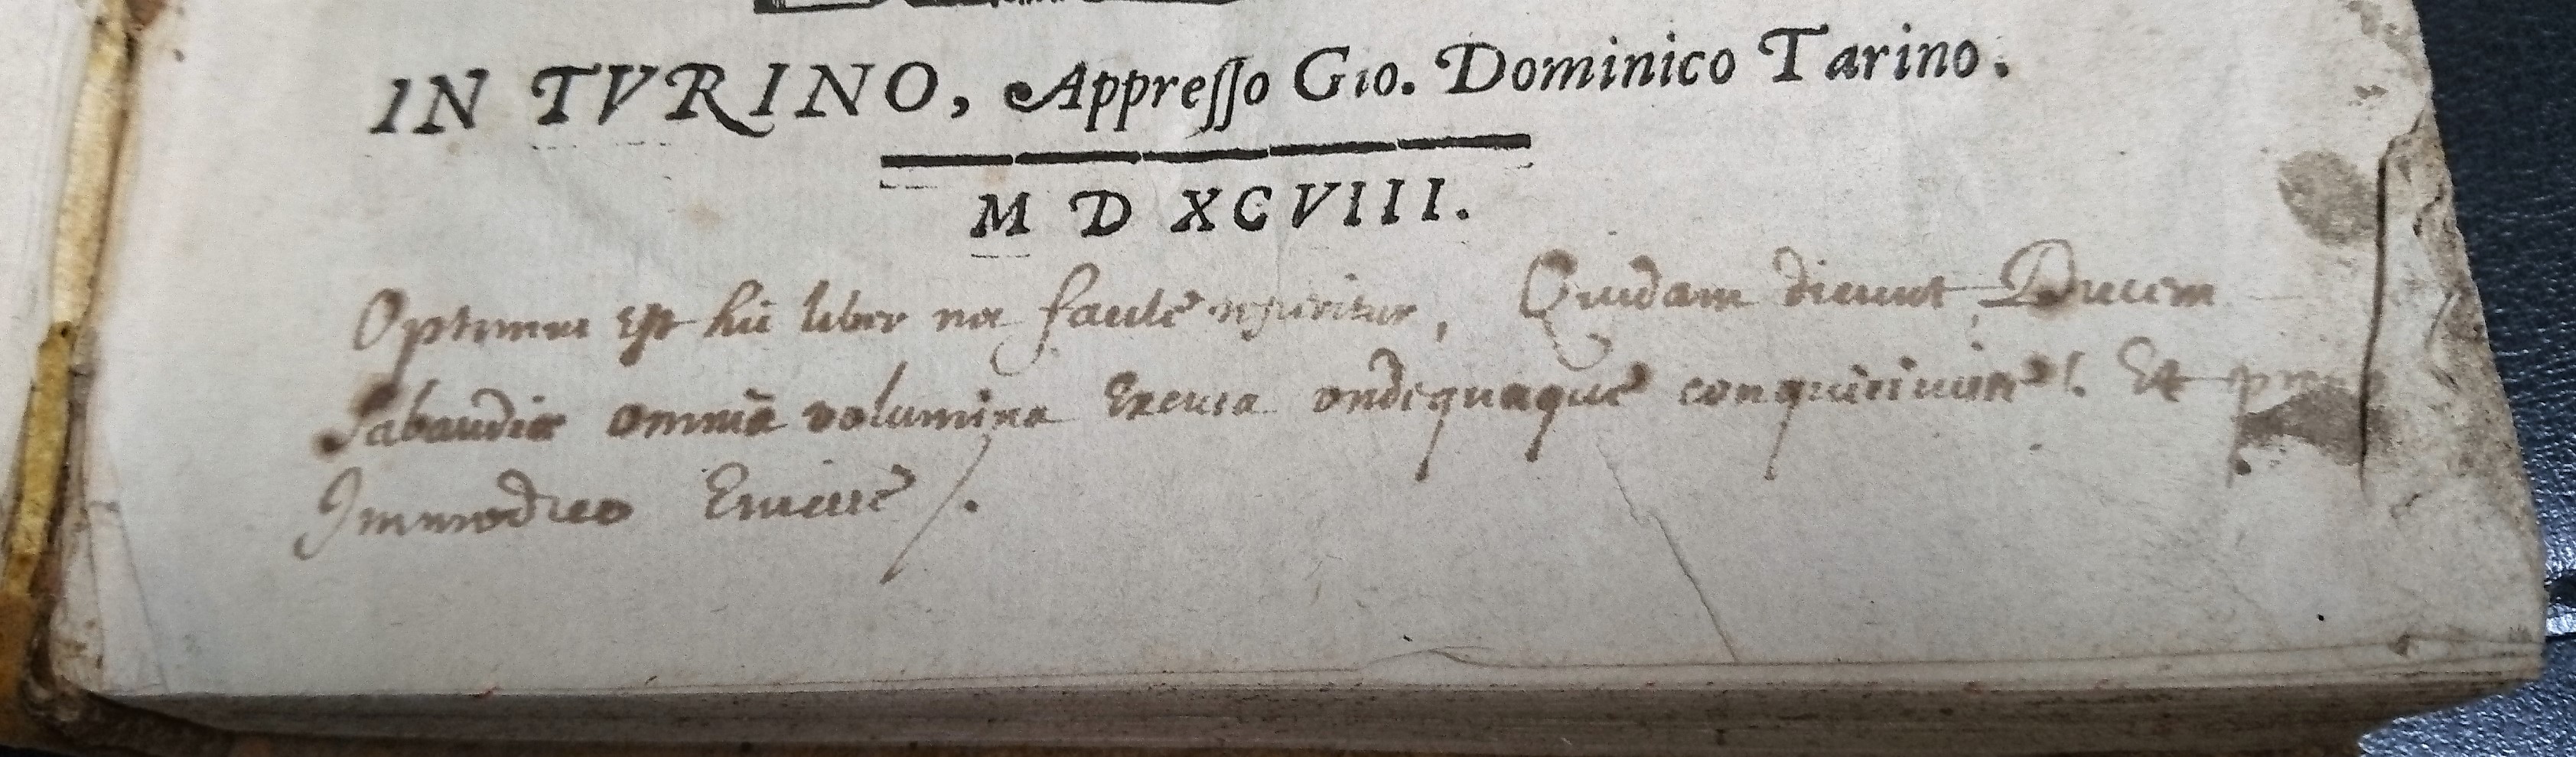 IN TVRINO, Appresso Gio. Dominico Tarino.
M D XCVIII.
Optimus est hic liber nec facile reperitur, Quidam dicunt Ducem
Sabaudiæ omnia volumina Excusa undequaque conquirivisse. Et
Immodico